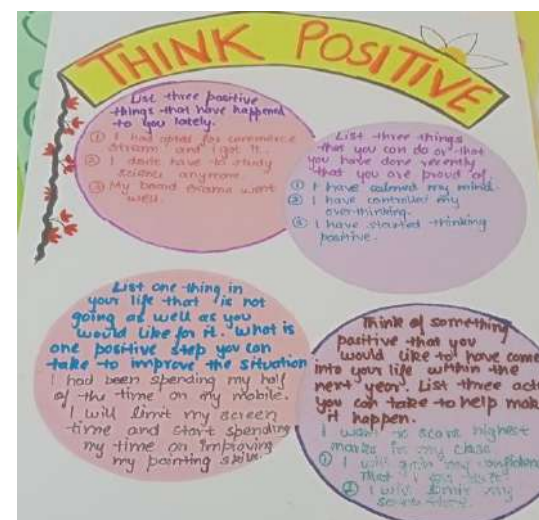 THINK POSITIVE
List three positive
things that have happened
to you lately.
① I had opted for commerce
stream and I got it.
② I don't have to study
science anymore
③ My board exams went
well.
List three things
that you can do or that
you have done recently
that you are proud of
① I have calmed my mind.
② I have controlled my
overthinking.
③ I have started thinking
positive.
List one thing in
your life that is not
going as well as you
would like for it. What is
one positive step you can
take to improve the situation
I had been spending my half
of the time on my mobile.
I will limit my screen
time and start spending
my time on improving
my painting skills.
Think of something
positive that you
would like to have come
into your life within the
next year. List three
you can take to help make
it happen.
I want to score highest
marks in my class
① I will gain my confidence
that I can
② I will limit my
screen time.